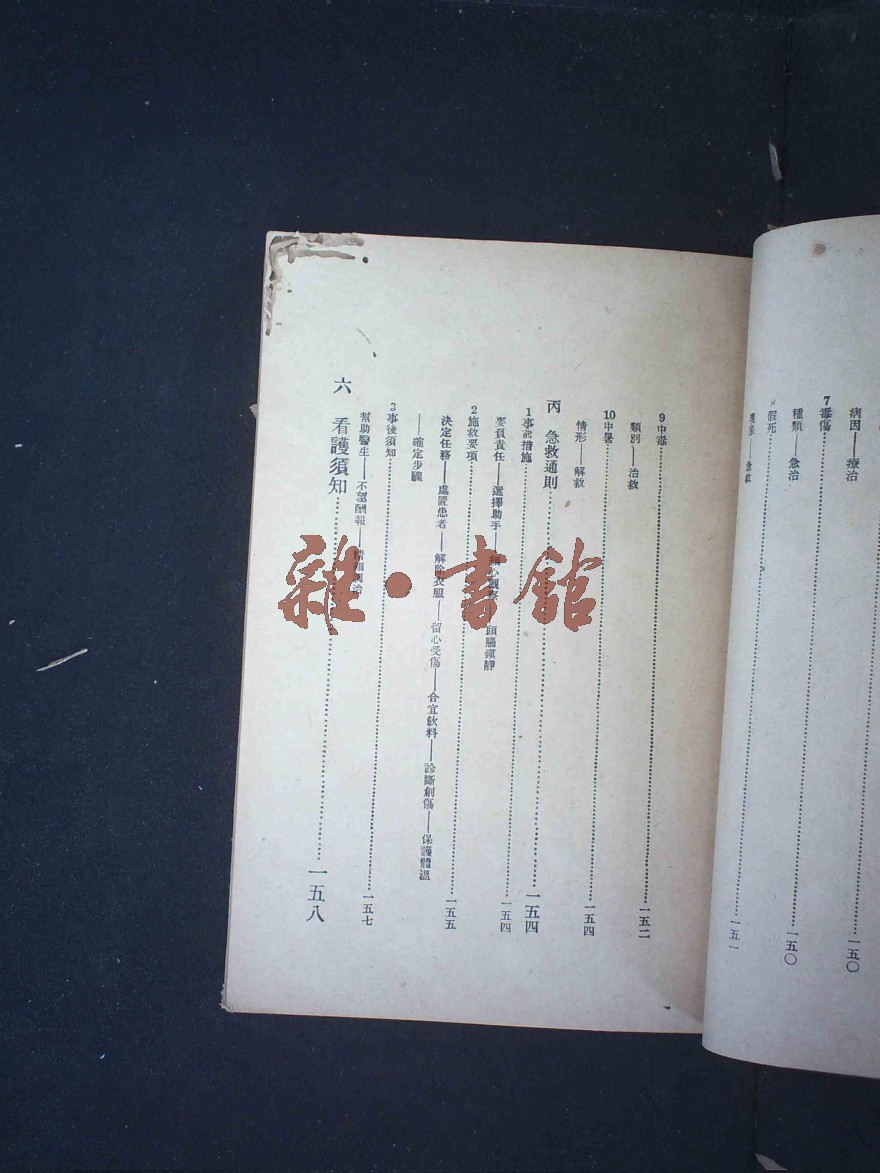 病因——療治
……一五〇
7毒傷……一五〇
種類——急治
假死……一五一
——急救
9中毒……一五二
類別——治救
10中暑……一五四
情形——解救
丙 急救通則……一五四
1事前措施……一五四
要負責任——選擇助手——細心觀察——頭腦鎮靜
2施救要項……一五五
決定任務——處置患者——解除衣服——留心受傷——合宜飲料——診斷創傷——保護體溫
——確定步驟
3事後須知……一五七
幫助醫生——不望酬報——
六 看護須知……一五八
雜·書館